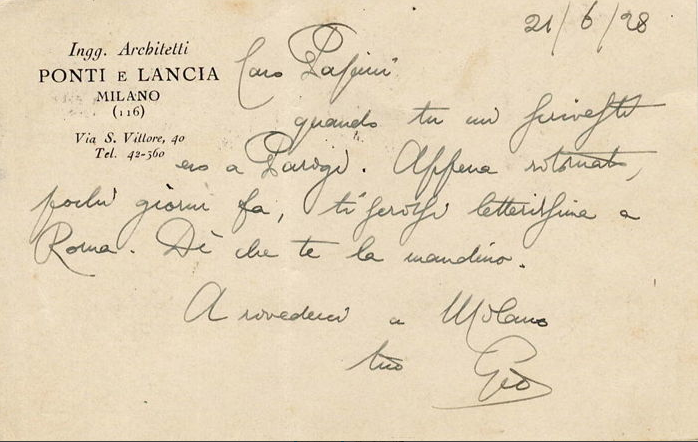 21/6/28
Ingg. Architetti
PONTI E LANCIA
MILANO
(116)
Via S. Vittore, 40
Tel. 42-560
Caro Papini
quando tu mi scrivesti
ero a Parigi. Appena ritornato,
pochi giorni fa, ti scrissi letterissima a
Roma. Dì che te la mandino.
A rivederci a Milano
tuo Gio